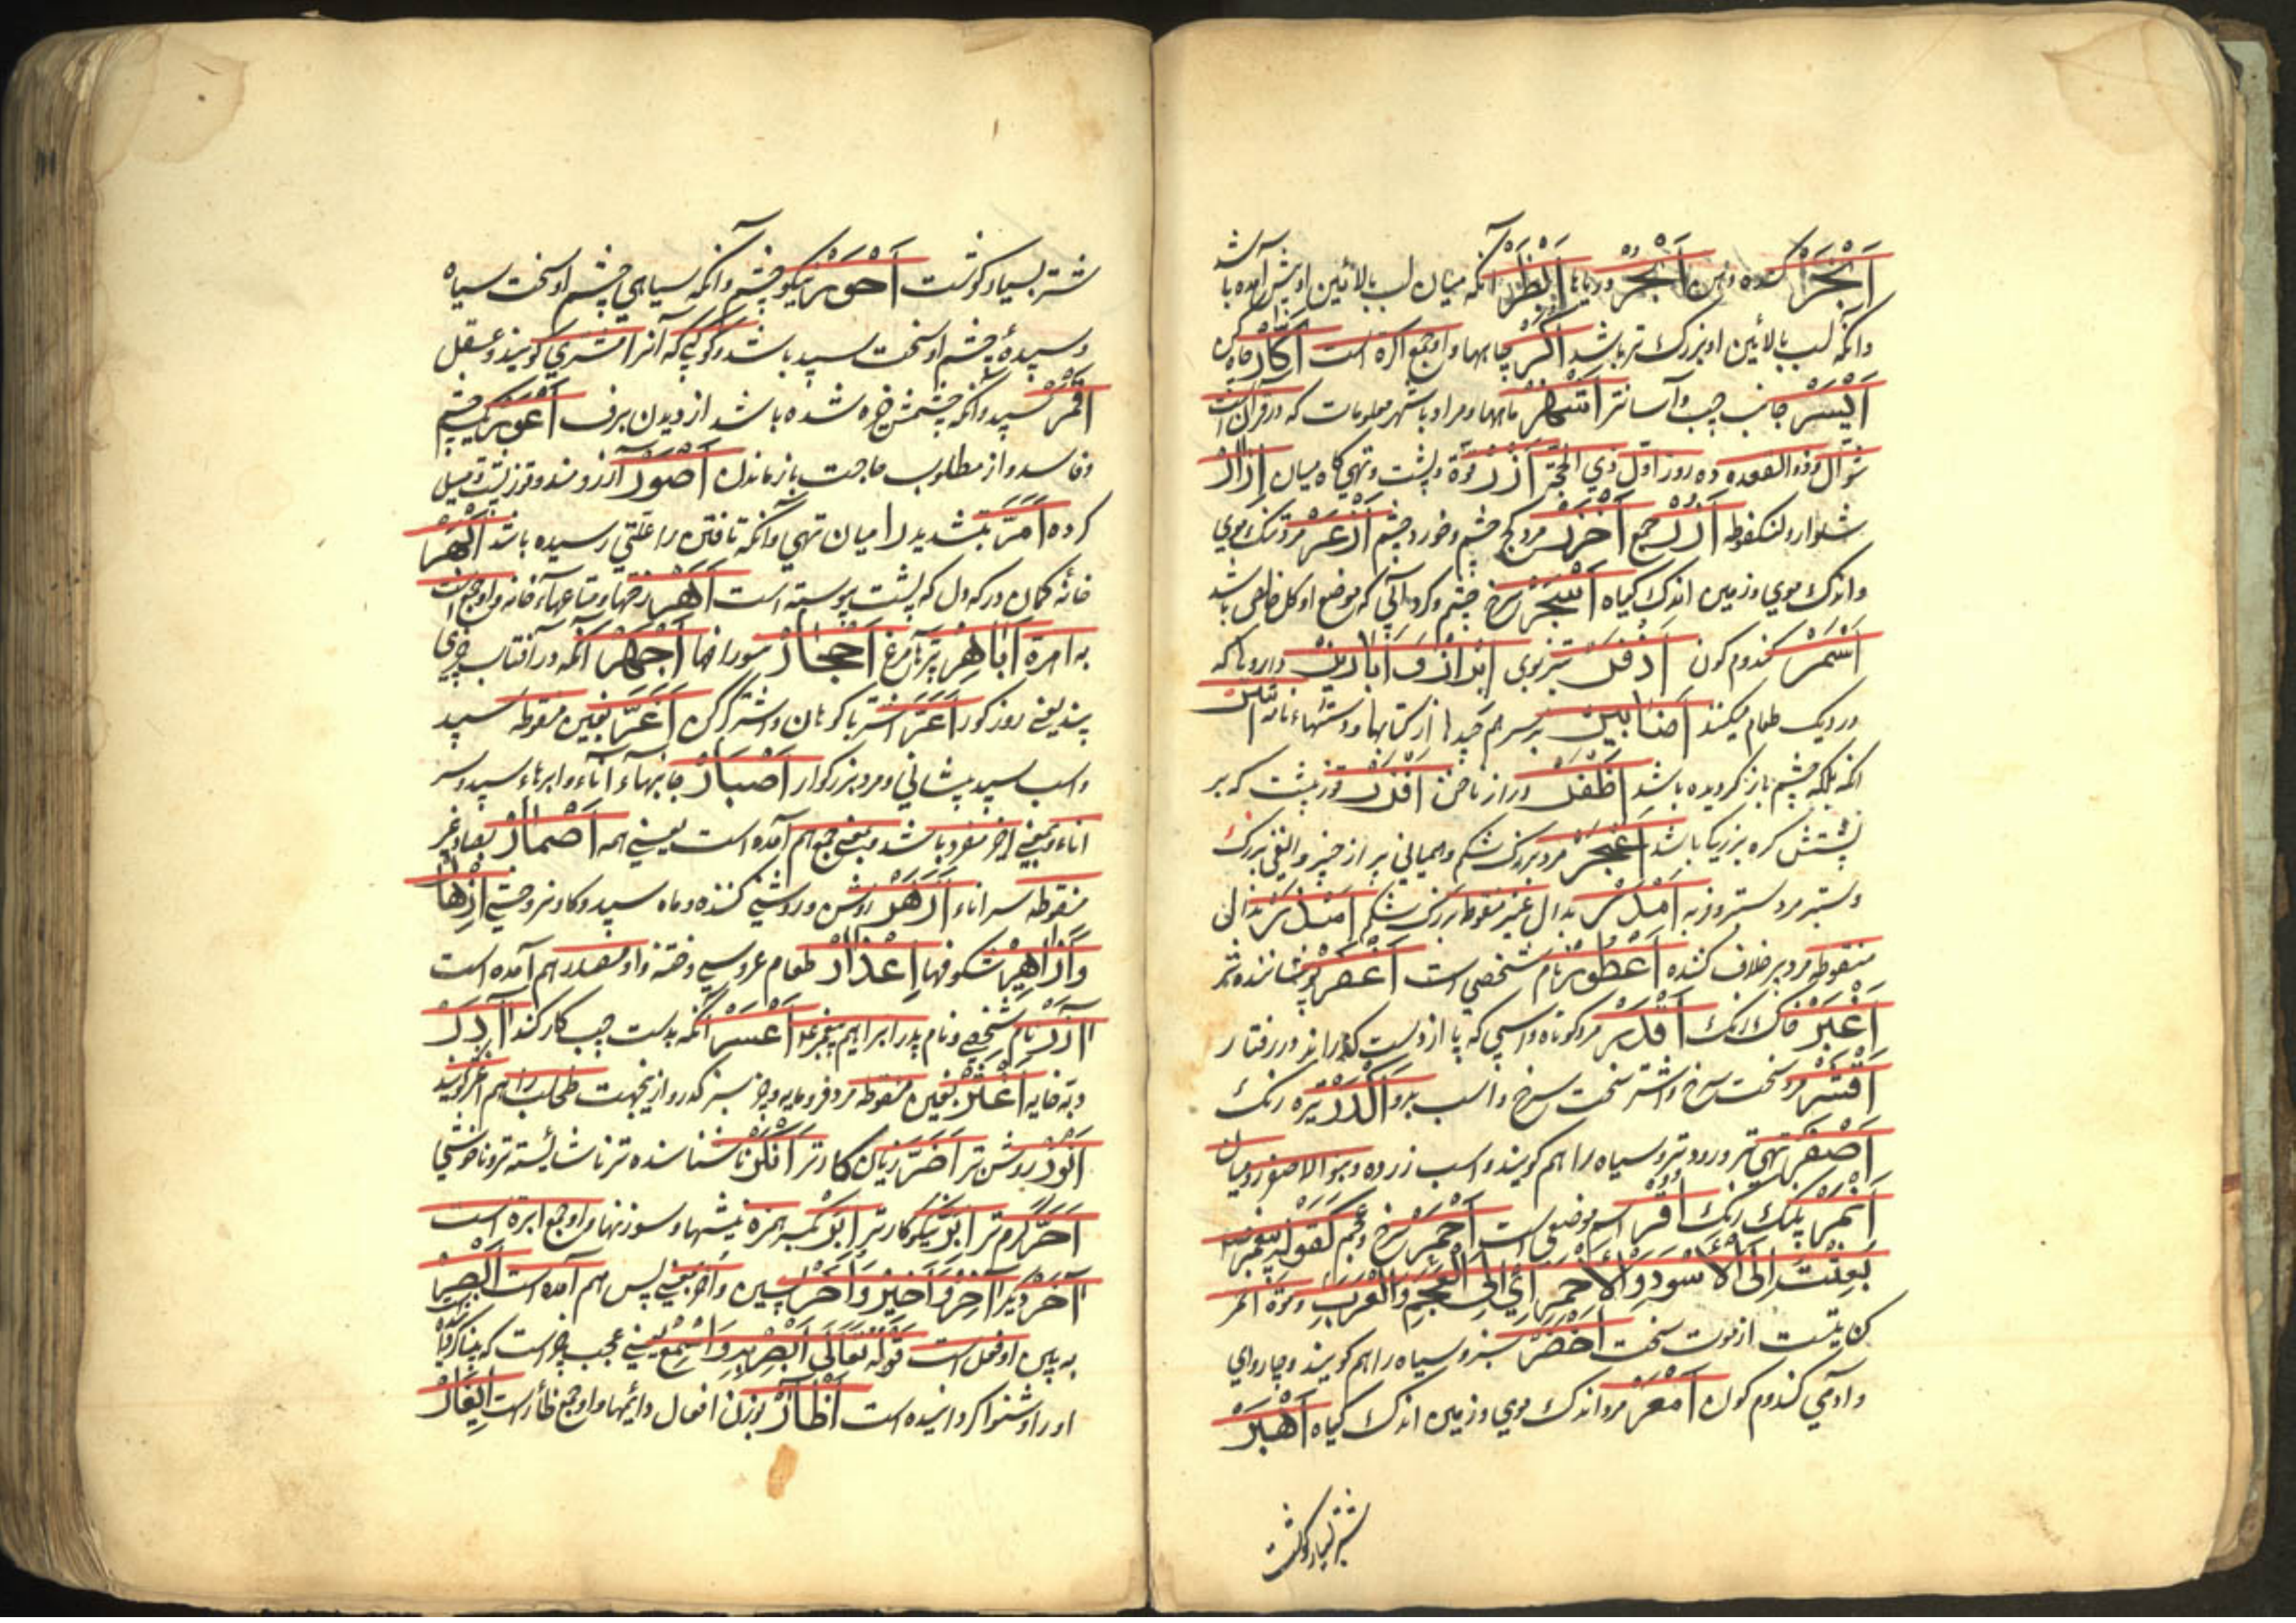 اَبْخَرْ کنده دهن اَبْحُرْ دریاها اَبْظَرْ آنکه میان لب بالائین او پیش آمده باشد
وانکه لب بالائین او بزرک تر باشد اُکَرْ چاهها واو جمع اکره است اَکّارْ
اَیْسَرْ جانب چپ وآسانتر اَشْهُرْ ماهها ومراد باشهر معلومات که در قرآن است
شوال وذو القعده وده روز اول ذی الحجة اَزْرْ قوة وپشت وتهی کاه میان اِزارْ
شلوار ولنکفوطه اُزُرْ جمع اَخْزَرْ مرد کج چشم وخورد چشم اَزْعَرْ مرد تنک موی
واندک موی وزمین اندک کیاه اَسْجَرْ سرخ چشم وکرد آبی که موضع او کل خالص باشد
اَسْمَرْ کندم کون اَذْفَرْ تیز بوی اَبْزارْ وَ اَبازیرْ داروها که
در دیک طعام میکنند اَضابیرْ بر سر هم چیدها از کتابها ودستهاء نامه
انکه پلک چشم باز کردیده باشد اَظْفَرْ دراز ناخن اَفْزَرْ قوز پشت که بر
پشتش کره بزرک باشد اَعْجَرْ مرد بزرک شکم وهمیانی پر از چیز والفی بزرک
وستبر مرد ستبر وفربه اَمْدَرْ بدال غیر منقوطه بزرک شکم اَمْذَرْ بذال
منقوطه مرد بر خلاف کننده نام شخصی است اَعْصَرْ
اَغْبَرْ خاک رنک اَقْدَرْ مرد کوتاه واسپی که پا از دست کذراند در رفتار
اَقْشَرْ مرد سخت سرخ واشتر سخت سرخ واسب اَکْدَرْ تیره رنک
اَصْفَرْ تهی تر وزرد تر وسیاه را هم کویند واسب زرده وبنو الاصفر رومیان
اَنْمَرْ پلنک رنک اَقُرْ اسم موضعی است اَحْمَرْ سرخ وعجم کقوله پیغمبر
بُعِثْتُ اِلَی الْاَسْوَدِ وَالْاَحْمَرِ اَیْ اِلَی الْعَجَمِ وَالْعَرَبِ وموت احمر
کنایتست از موت سخت اَخْضَرْ سبز وسیاه را هم کویند وچاروای
وادمی کندم کون اَمْعَرْ مرد اندک موی وزمین اندک کیاه اَهْبَرْ
شتر بسیار کوشت
شتر بسیار کوشت اَحْوَرْ نیکو چشم وآنکه سیاهی چشم او سخت سیاه
وسپیدهٔ چشم او سخت سپید باشد وکوکبی که آنرا مشتری کویند وعقل
اَقْمَرْ سپید وانکه چشمش خیره شده باشد از دیدن برف اَعْوَرْ یک چشم
وفاسد واز مطلوب حاجت باز ماندن اَصْوَرْ آرزومند وقوز پشت ومیل
کرده اَمَرّ بتشدید را میان تهی وآنکه تافتن را علتی رسیده باشد اَبْهَرْ
خانهٔ کمان ورک دل که پشت پیوسته است اَهَرْ رختها ومتاعهاء خانه واو جمع است
به اهرة اَباهِرْ پرهاء مرغ اَحْجارْ سوراخها اَجْهَرْ آنکه در آفتاب چیزی
نبیند یعنی روز کور اَعَرّ اشتر با کوهان واشتر کرکن اَغَرّ بغین منقوطه سپید
واسب سپید پیشانی ومرد بزرکوار اَصْبارْ جانبهاء آناء وابرهاء سپید وسر
اناء وبمعنی اخر مفرد باشد وبمعنی جمع هم آمده است یعنی همه اَصْمارْ بصاد غیر
منقوطه سر اناء اَزْهَرْ روشن وروشنی کننده وماه سپید وکاو نر وحشی اَزْهارْ
وَاَزاهِرْ شکوفها اِعْذارْ طعام عروسی وختنه واو مصدر هم آمده است
آزَرْ نام شخصی ونام پدر ابراهیم پیغمبر علم اَعْسَرْ آنکه بدست چپ کار کند آدَرْ
دبه خایه اَغْثَرْ بغین منقوطه مرد فرومایه وچیز سبز کدر واز ینجهت طحلب را هم اغثر کویند
اَنْوَرْ روشن تر اَضَرّ زیان کارتر اَنْکَرْ ناشناسنده تر ناشایسته تر وناخوشتر
اَحَرّ کرم تر اَبَرّ نیکو کارتر اِبَرْ بکسر همزه نیشها وسوزنها واو جمع ابره است
آخَرْ دیکر آخِرْ وَاَخیرْ وَاَخَرْ پسین واخر بمعنی پس هم آمده است اَبْصِرْ
به بین او فعل است قَوْلُهُ تَعَالَی اَبْصِرْ بِهِ وَاَسْمِعْ یعنی عجب چیز است که بینا کرد
او را وشنوا کردانیده است اَظْآرْ بوزن افعال دایهها واو جمع ظأر است اَیْغارْ